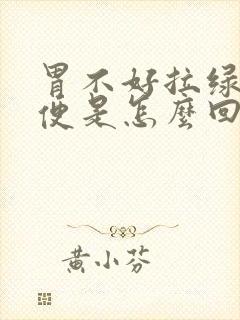 胃不好拉绿
便是怎麼回
黄小芬